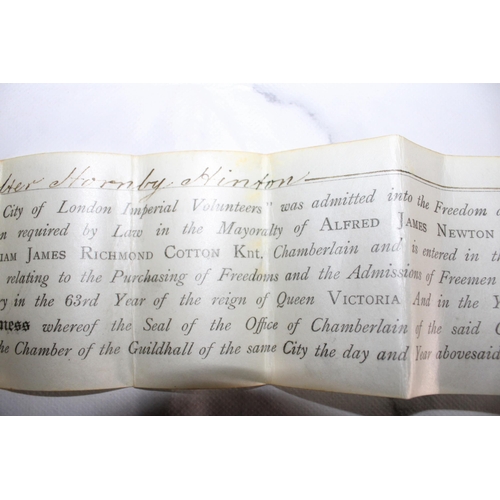 lter Hornby Hinton
City of London Imperial Volunteers" was admitted into the Freedom
n required by Law in the Mayoralty of ALFRED JAMES NEWTON
IAM JAMES RICHMOND COTTON Knt. Chamberlain and is entered in the
relating to the Purchasing of Freedoms and the Admissions of Freemen
ry in the 63rd Year of the reign of Queen VICTORIA And in the Y
ness whereof the Seal of the Office of Chamberlain of the said
he Chamber of the Guildhall of the same City the day and Year abovesaid